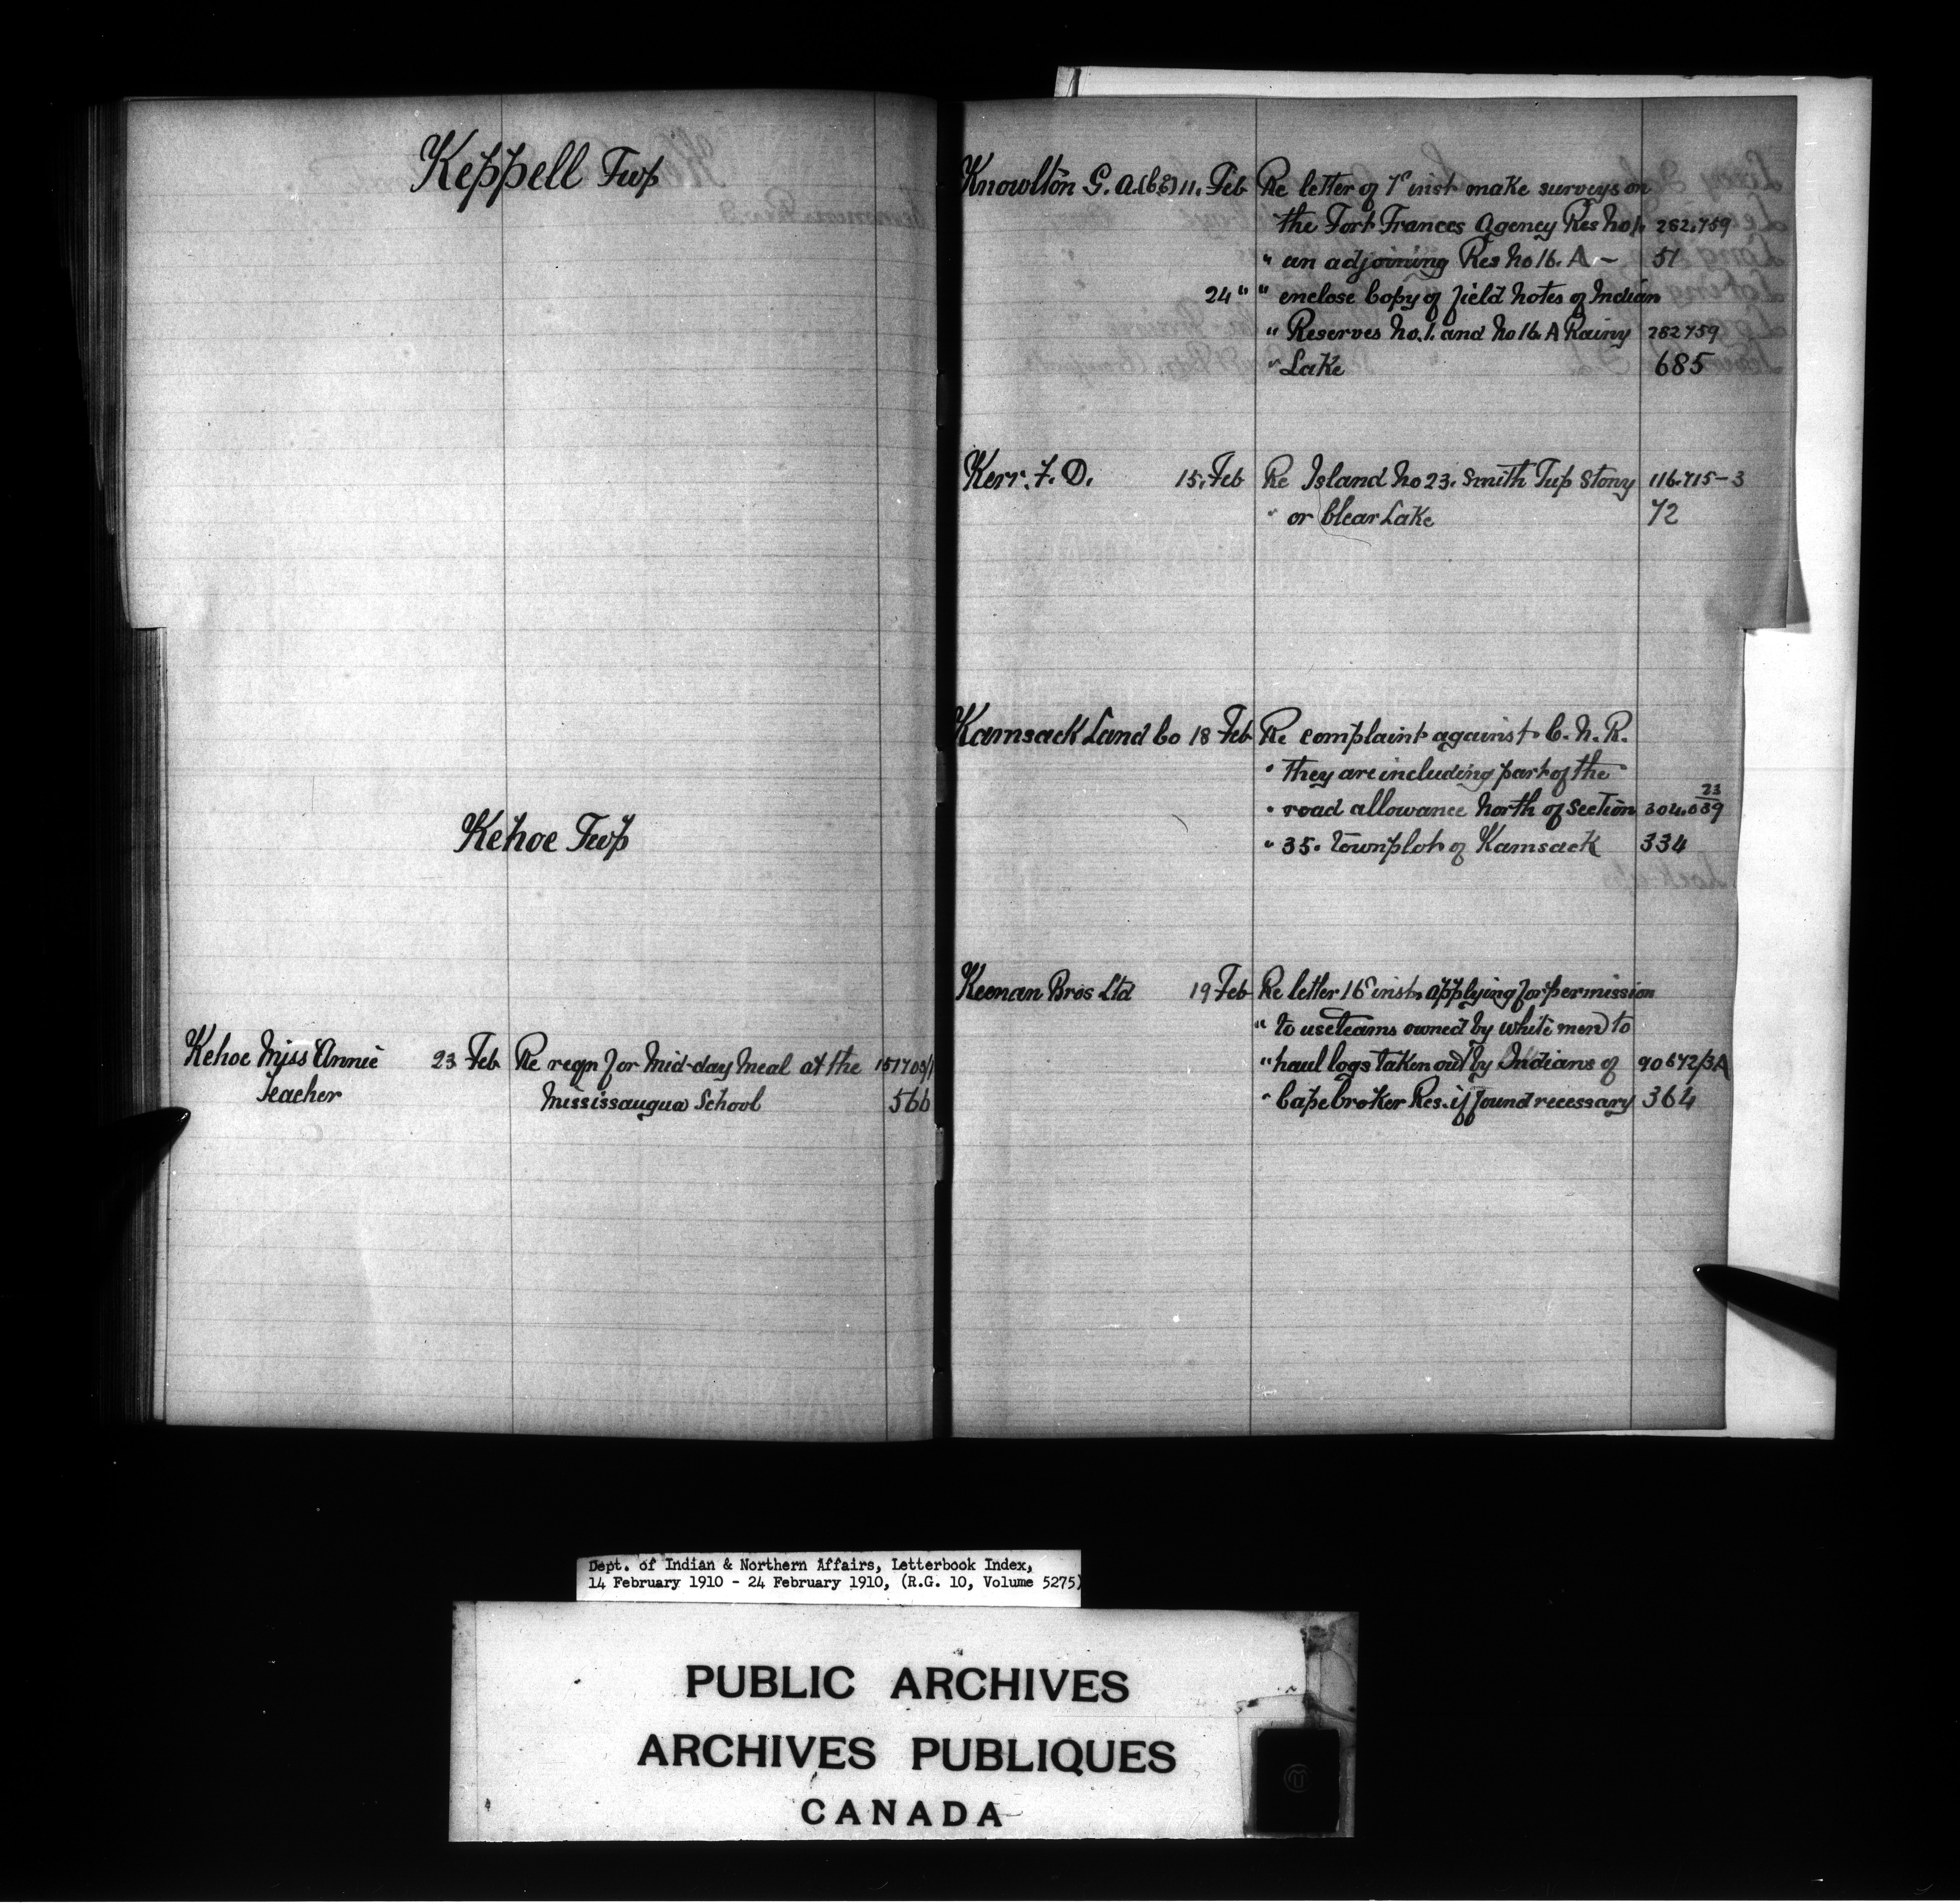 Keppell Twp
Kehoe Twp
Kehoe Miss Annie 23 Feb Re reqn for Mid-day Meal at the 151709/1
Teacher Mississaugua School 566
Knowlton G. A. (C.E) 11. Feb Re letter of 7" inst make surveys on
the Fort Frances Agency Res No 1. 282.759
" an adjoining Res No 16. A – 51
24 " " enclose Copy of field Notes of Indian
" Reserves No. 1. and No 16. A Rainy 282759
" Lake 685
Kerr. F. D. 15. Feb Re Island No 23. Smith Twp Stony 116.715-3
" or Clear Lake 72
Kamsack Land Co 18 Feb Re complaint against C. N. R.
" they are including part of the
" road allowance North of Section 304.039 23
" 35. Townplot of Kamsack 334
Keenan Bros Ltd 19 Feb Re letter 16" inst. applying for permission
" to use teams owned by white men to
" haul logs taken out by Indians of 90672/3A
" Cape Croker Res. if found necessary 364
Dept. of Indian & Northern Affairs, Letterbook Index,
14 February 1910 - 24 February 1910, (R.G. 10, Volume 5275)
PUBLIC ARCHIVES
ARCHIVES PUBLIQUES
CANADA